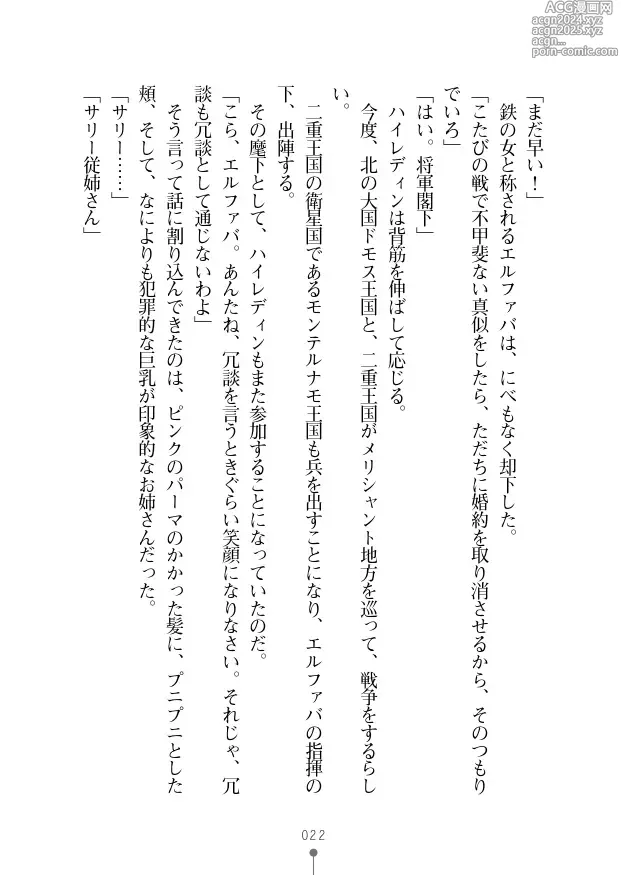 ACG漫画网
acgn2024.xyz
acgn2025.xyz
acgn...
porn-comic.com
「まだ早い！」
　鉄の女と称されるエルファバは、にべもなく却下した。
「こたびの戦で不甲斐ない真似をしたら、ただちに婚約を取り消させるから、そのつもり
でいろ」
「はい。将軍閣下」
　ハイレディンは背筋を伸ばして応じる。
　今度、北の大国ドモス王国と、二重王国がメリシャント地方を巡って、戦争をするらし
い。
　二重王国の衛星国であるモンテルナモ王国も兵を出すことになり、エルファバの指揮の
下、出陣する。
　その麾下として、ハイレディンもまた参加することになっていたのだ。
「こら、エルファバ。あんたね、冗談を言うときぐらい笑顔になりなさい。それじゃ、冗
談も冗談として通じないわよ」
　そう言って話に割り込んできたのは、ピンクのパーマのかかった髪に、プニプニとした
頬、そして、なによりも犯罪的な巨乳が印象的なお姉さんだった。
「サリー……」
「サリー従姉さん」
022